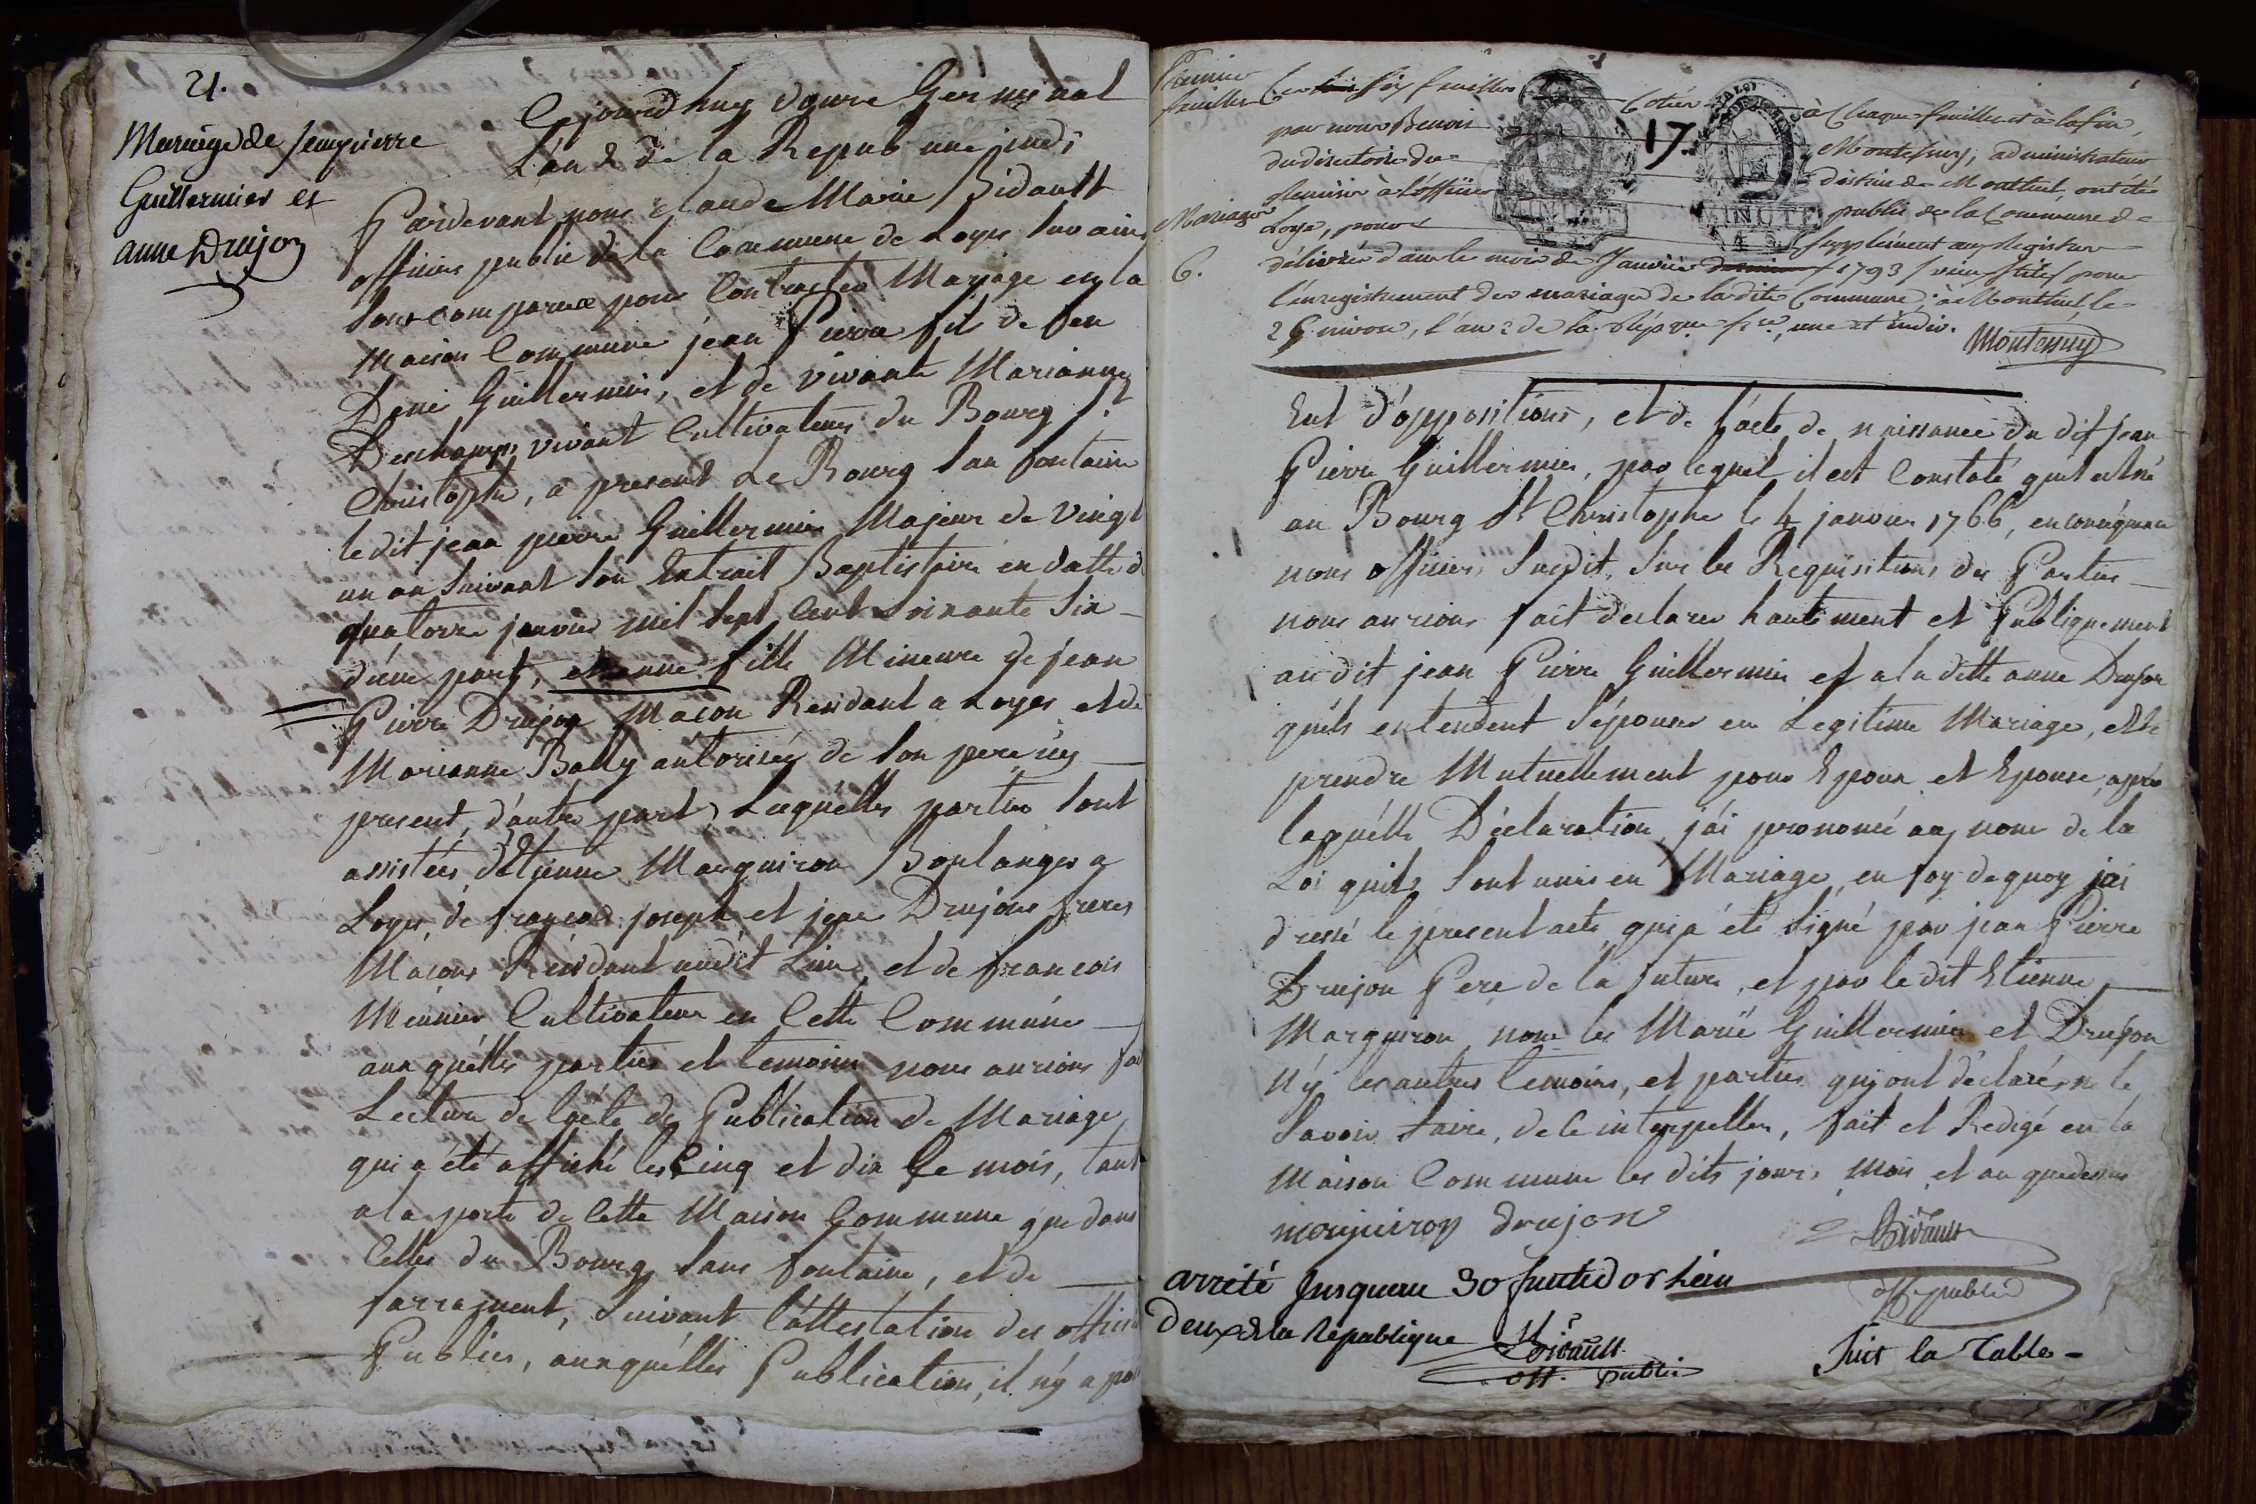 21.
Mariage de jeanpierre
Guillermier et
anne Drujon
Cejourd'huy douze Germinal
L'an 2 de la Repub une indi
Pardevant nous Claude Marie Bidault
officier public de la Commune de Loyes
sont comparus pour Contracter Mariage en la
Maison Commune jean Pierre fils de feu
Guillermier, et de vivante Marianne
Deschamps vivant Cultivateurs du Bourg St
Christophe, a present Le Bourg San fontaine
le dit jean pierre Guillermier Majeur de Vingt
un an suivant son Extrait Baptistaire en datte d
quatorze janvier mil sept Cent soixante six
d'une part, et anne fille Mineure de jean
Pierre Drujon Macon Residant a Loyes et de
Marianne Bally autorisée de son pere icy
present, d'autre part, Lesquelles parties sont
assistées d'Etienne Marguiron Boulanger a
Loyes, de françois joseph et jean Drujons freres
Macons Residant audit Lieu, et de francois
Meunier Cultivateur en Cette Commune
aux quélles parties et temoins nous aurions fai
Lecture de l'acte de Publication de Mariage
qui a été affiché les Cinq et dix Ce mois, tant
a la porte de Cette Maison Commune que dans
Celles du Bourg sans fontaine, et de
suivant l'attestation des offici
Publics, auxquélles Publication, il n'y a poi
Premier
feuillet
Mariages
6.
Ces six feuillets Cotés 17. à Chaque feuillet et à la fin,
par nous Benoit Montessuy, administrateur
du directoire du district de Montluel, ont été
à l'officier public de la Commune de
Loye, pour supplément aux Registres
délivrés dans le mois de Janvier 1793 vieux stile pour
l'enregistrement des mariages de ladite Commune; à Montluel, le
26 nivose, l'an 2 de la Répque frse, une et indiv.
Montessuy
Eut d'oppositions, et de l'acte de naissance du dit jean
Pierre Guillermier, par lequel il est Constaté qu'il est né
au Bourg St Christophe le 4 janvier 1766, en conséquence
nous officier Susdit, Sur les Requisitions des Parties
nous aurions fait déclarer hautement et Publiquement
au dit jean Pierre Guillermier et a la ditte anne Drujon
qu'ils entendent s'épouser en Legitime Mariage, et se
prendre Mutuellement pour Epoux et Epouse, après
laquélle Déclaration j'ai prononcé au nom de la
Loi quils sont unis en Mariage, en foy de quoy jai
dressé le present acte qui a été signé par jean Pierre
Drujon Pere de la future, et par le dit Etienne
Marguiron, non les Marié Guillermier et Drujon
n'y les autres temoins, et parties qui ont déclaré ne le
Savoir faire, de ce interpellés, fait et Redigé en la
Maison Commune les dits jour, Mois et an que dessus
drujon
Bidault
off. public
arrété jusqueau 30 de lan
deux de la République Bidault
off. public
Suit la Table